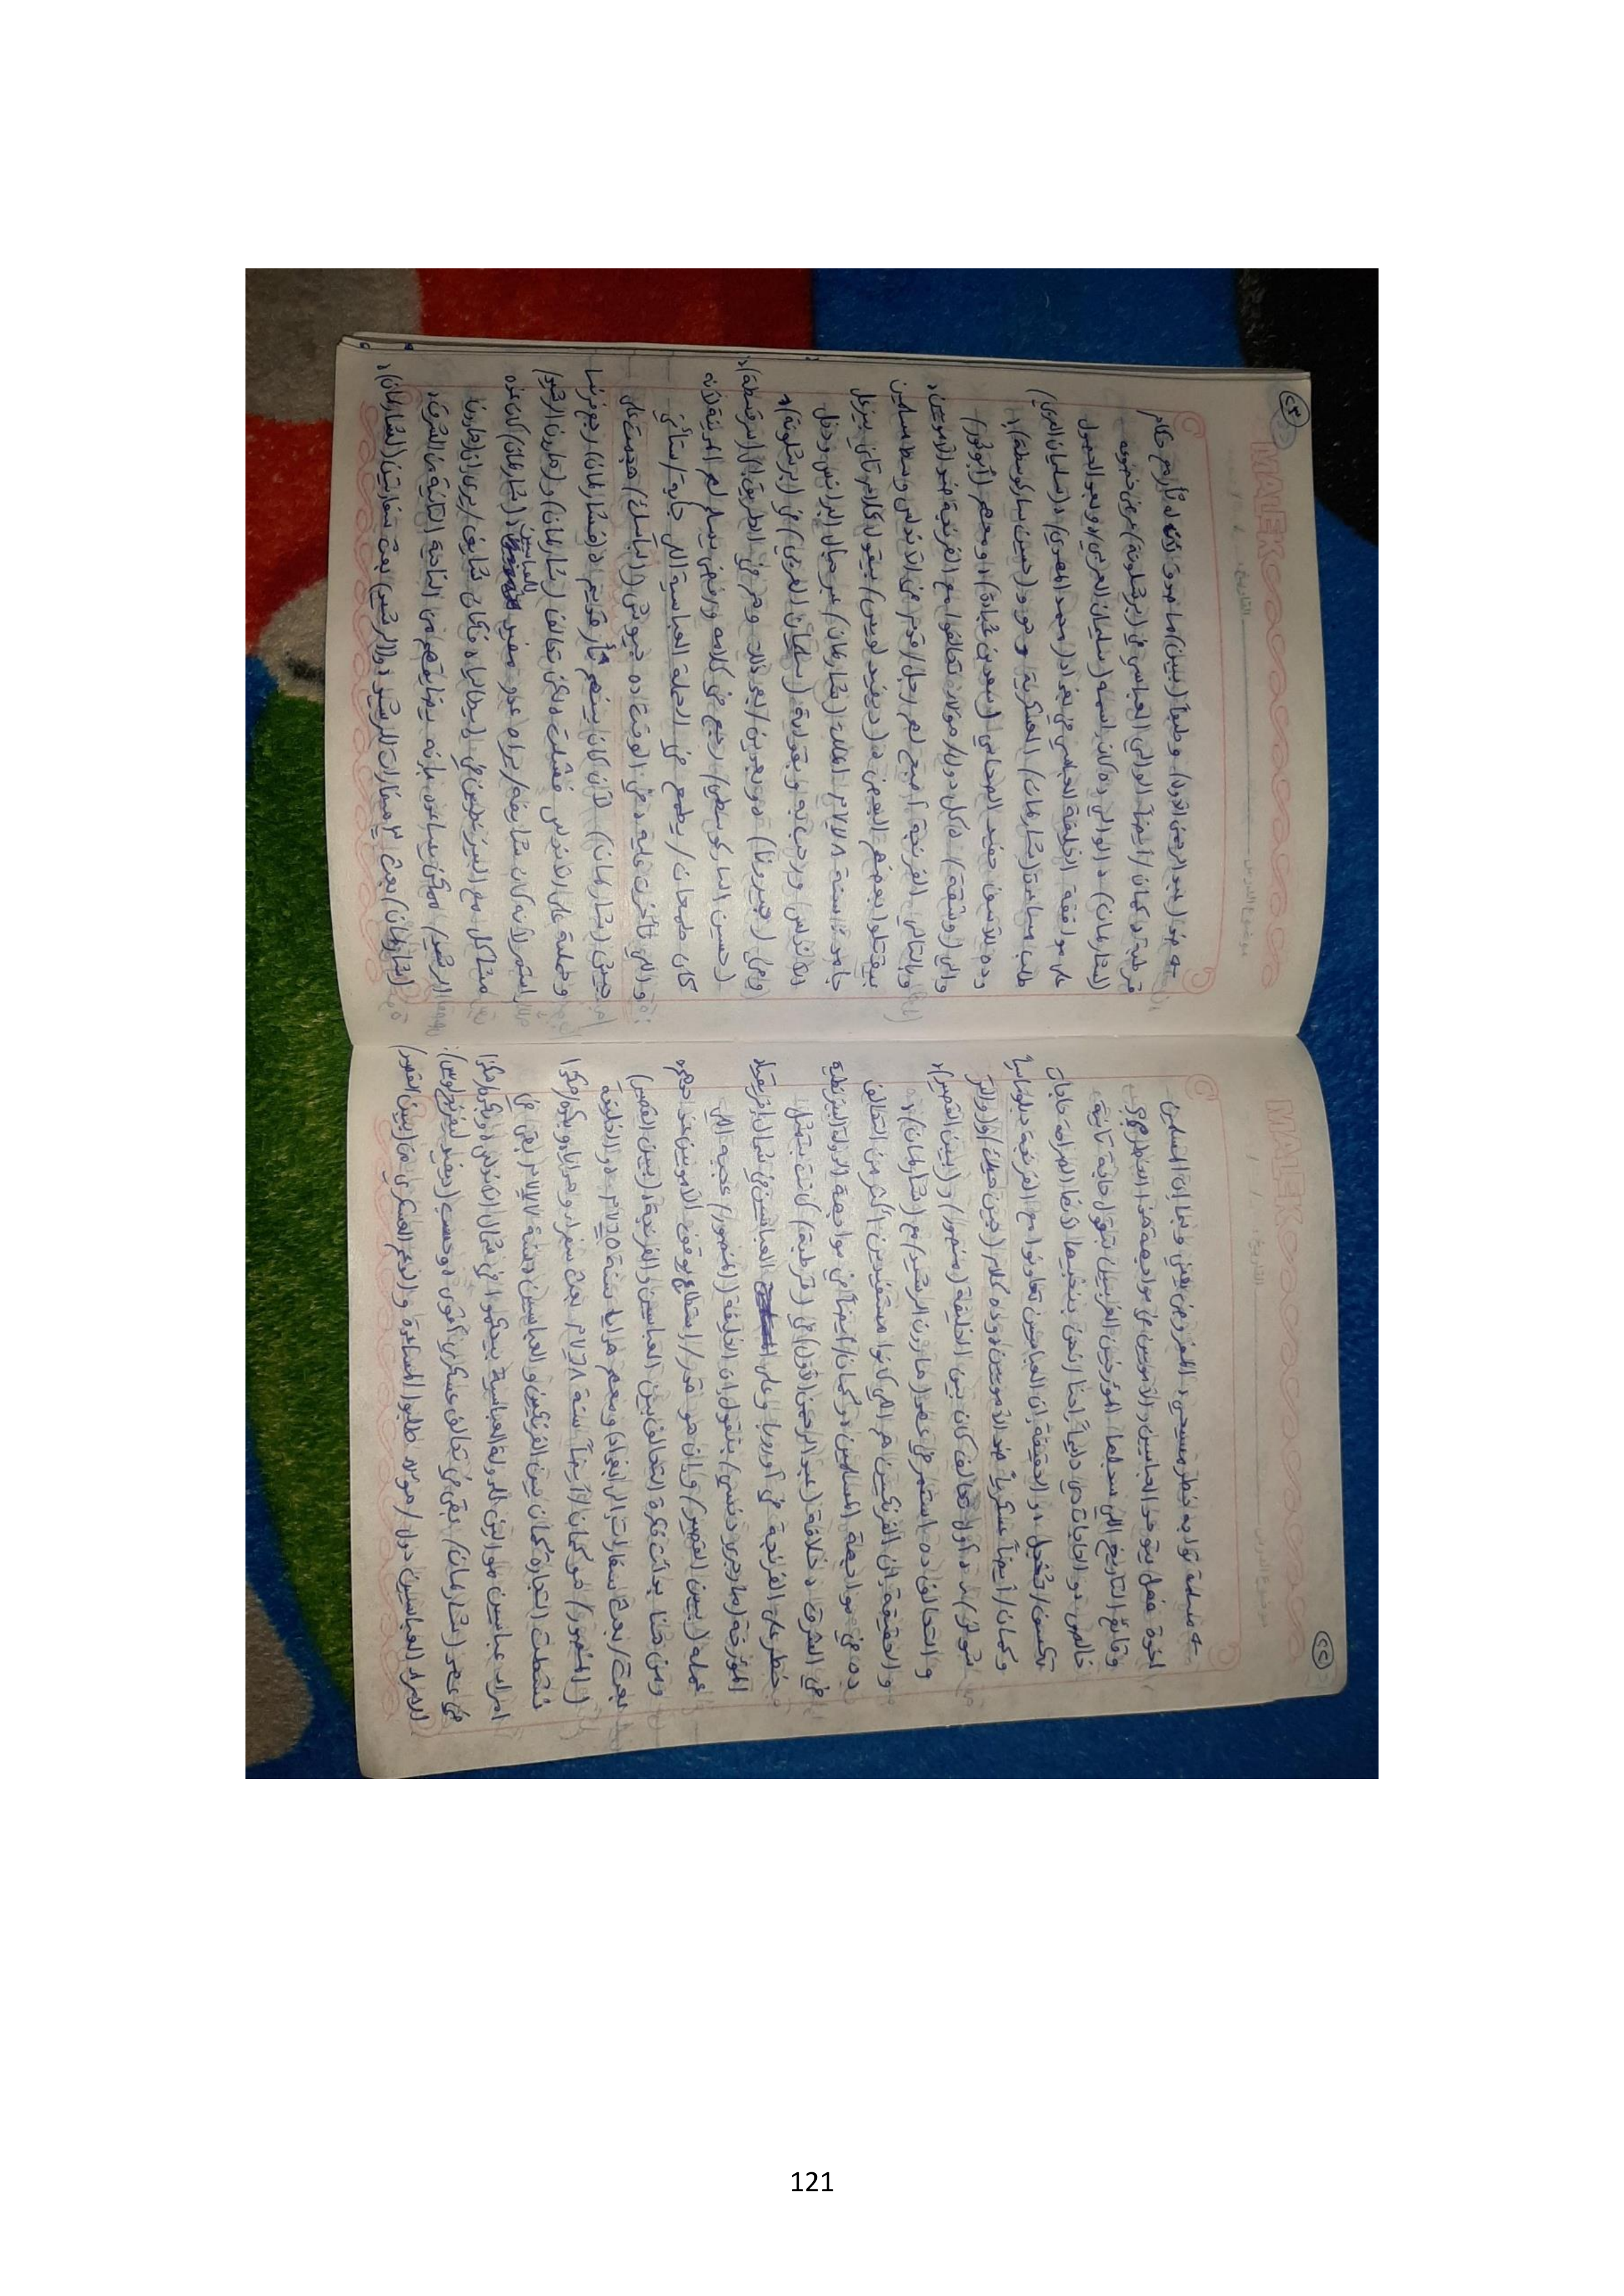 موضوع الدرس التاريخ / /
MALEK
٢٢
← مسلمة قوات به خطر مسيحي، المفروض يعني وبما إن المسلمين
اخوة فضل يتوحدوا العباسيين والأمويين في مواجهة هذا الخطر
وقائع التاريخ اللي سجلها المؤرخين الغربيين بتقول حاجة تانية
خالص، دو الحاجات دي دايماً احنا بنخبيها لأنها الصراحة حاجات
تكسف / تخجل، دو الحقيقة إن العباسيين تعاونوا مع الفرنجة ديبلوماسياً
وكمان / أيضاً عسكرياً ضد الأمويين، وده كلام (جين
دو أول تحالف كان بين الخليفة (منصور) و (بيبن القصير)،
والتحالف ده استمر في عهد (هارون الرشيد) مع (شارلمان)،
والحقيقة إن الفرنكيين هم اللي كانوا مستفيدين أكتر من التحالف
ده في مواجهة المسلمين، وكمان / أيضاً في مواجهة الدولة البيزنطية
في الشرق، دخلافة (عبد الرحمن الأول) في (قرطبة) كانت بتمثل
خطر على الفرنجة في أوروبا وعلى العباسيين في شمال إفريقيا،
المؤرخة (مارجرى دنسى) بتقول إن الخليفة (المنصور) عجبه اللي
عمله (بيبن القصير) وإن هو قدر / استطاع يوقف الأمويين عند حدهم
ومن هنا بدأت فكرة التحالف بين العباسيين والفرنجة، (بيبن القصير)
بعت / بعث سفارات إلى (بغداد) ومعهم هدايا سنة ٧٦٥م، دو الخليفة
(المنصور) هو كمان / أيضاً سنة ٧٦٨م بعت سفراء وهدايا، وبكده / هكذا
نشطت التجارة كمان بين الفرنكيين والعباسيين، دسنة ٧٧٧م بقى في
أمراء عباسيين موالين للدولة العباسية بيحكموا في شمال الأندلس، وبكده / هكذا
في عهد (شارلمان) بقى في تحالف عسكري أقوى، وحسب (ديفيد ليفرنج لوس):
الأمراء العباسيين دول / هؤلاء طلبوا المساعدة والدعم العسكري من (بيبن القصير)
موضوع الدرس التاريخ
MALEK
٢٣
← ضد (عبد الرحمن الأول)، وطبعاً (بيبن) ما صدق
قرطبة، دكمان / أيضاً الوالي العباسي في (برشلونة) عرض خضوعه
لـ(شارلمان)، دالوالي ده كان اسمه (سليمان العربي)، وبعد الحصول
على موافقة الخليفة العباسي في بغداد (محمد المهدي)، د(سليمان العربي)
طلب مساعدة (شارلمان) العسكرية وهو و(حسين ساركوسطة)،
وده للأسف حفيد الصحابي (سعد بن عُبادة)، ومعهم (أبو ثور)
والي (وشقة)، دكل دول / هؤلاء تحالفوا مع الفرنجة ضد الأمويين،
وبالتالي الفرنجة أصبح لهم رجل / قدم في الأندلس وسط مسلمين
بيقتلوا بعضهم البعض، د(ديفيد لويس) بيقول كلام تاني بيزعل
جامد: سنة ٧٧٨م الملك (شارلمان) عبر جبال البرانس ودخل
الأندلس ورحب به وبقواته (سليمان العربي) في (برشلونة)،
و(چيرونا)، وبعدين / بعد ذلك وهم في الطريق إلى (سرقسطة)،
(حسين الساركوسطي) رجع في كلامه ورفض يسلم لهم المدينة لأنه
كان طمعان / يطمع في الحملة العباسية اللي جاية / ستأتي
واللي تأخرت عليه، دفي الوقت ده جيوش (الباسك) هجمت على
جيش (شارلمان) لأن كان بينهم تار قديم، د(شارلمان) رجع فرنسا
وحملته على الأندلس فشلت، دلكن تحالف (شارلمان) و(هارون الرشيد)
استمر لأنه كان شايفه / يراه عدو مفيد للعباسيين، د(شارلمان) كان عنده
مشاكل مع البيزنطيين في إيطاليا، دفكان شايف / يرى أن (هارون
الرشيد) ممكن يساعده بإنه يضايقهم من الناحية التانية في الشرق،
(شارلمان) بعث ٣ سفارات للرشيد، و(الرشيد) بعت سفارتين (لشارلمان)،
121